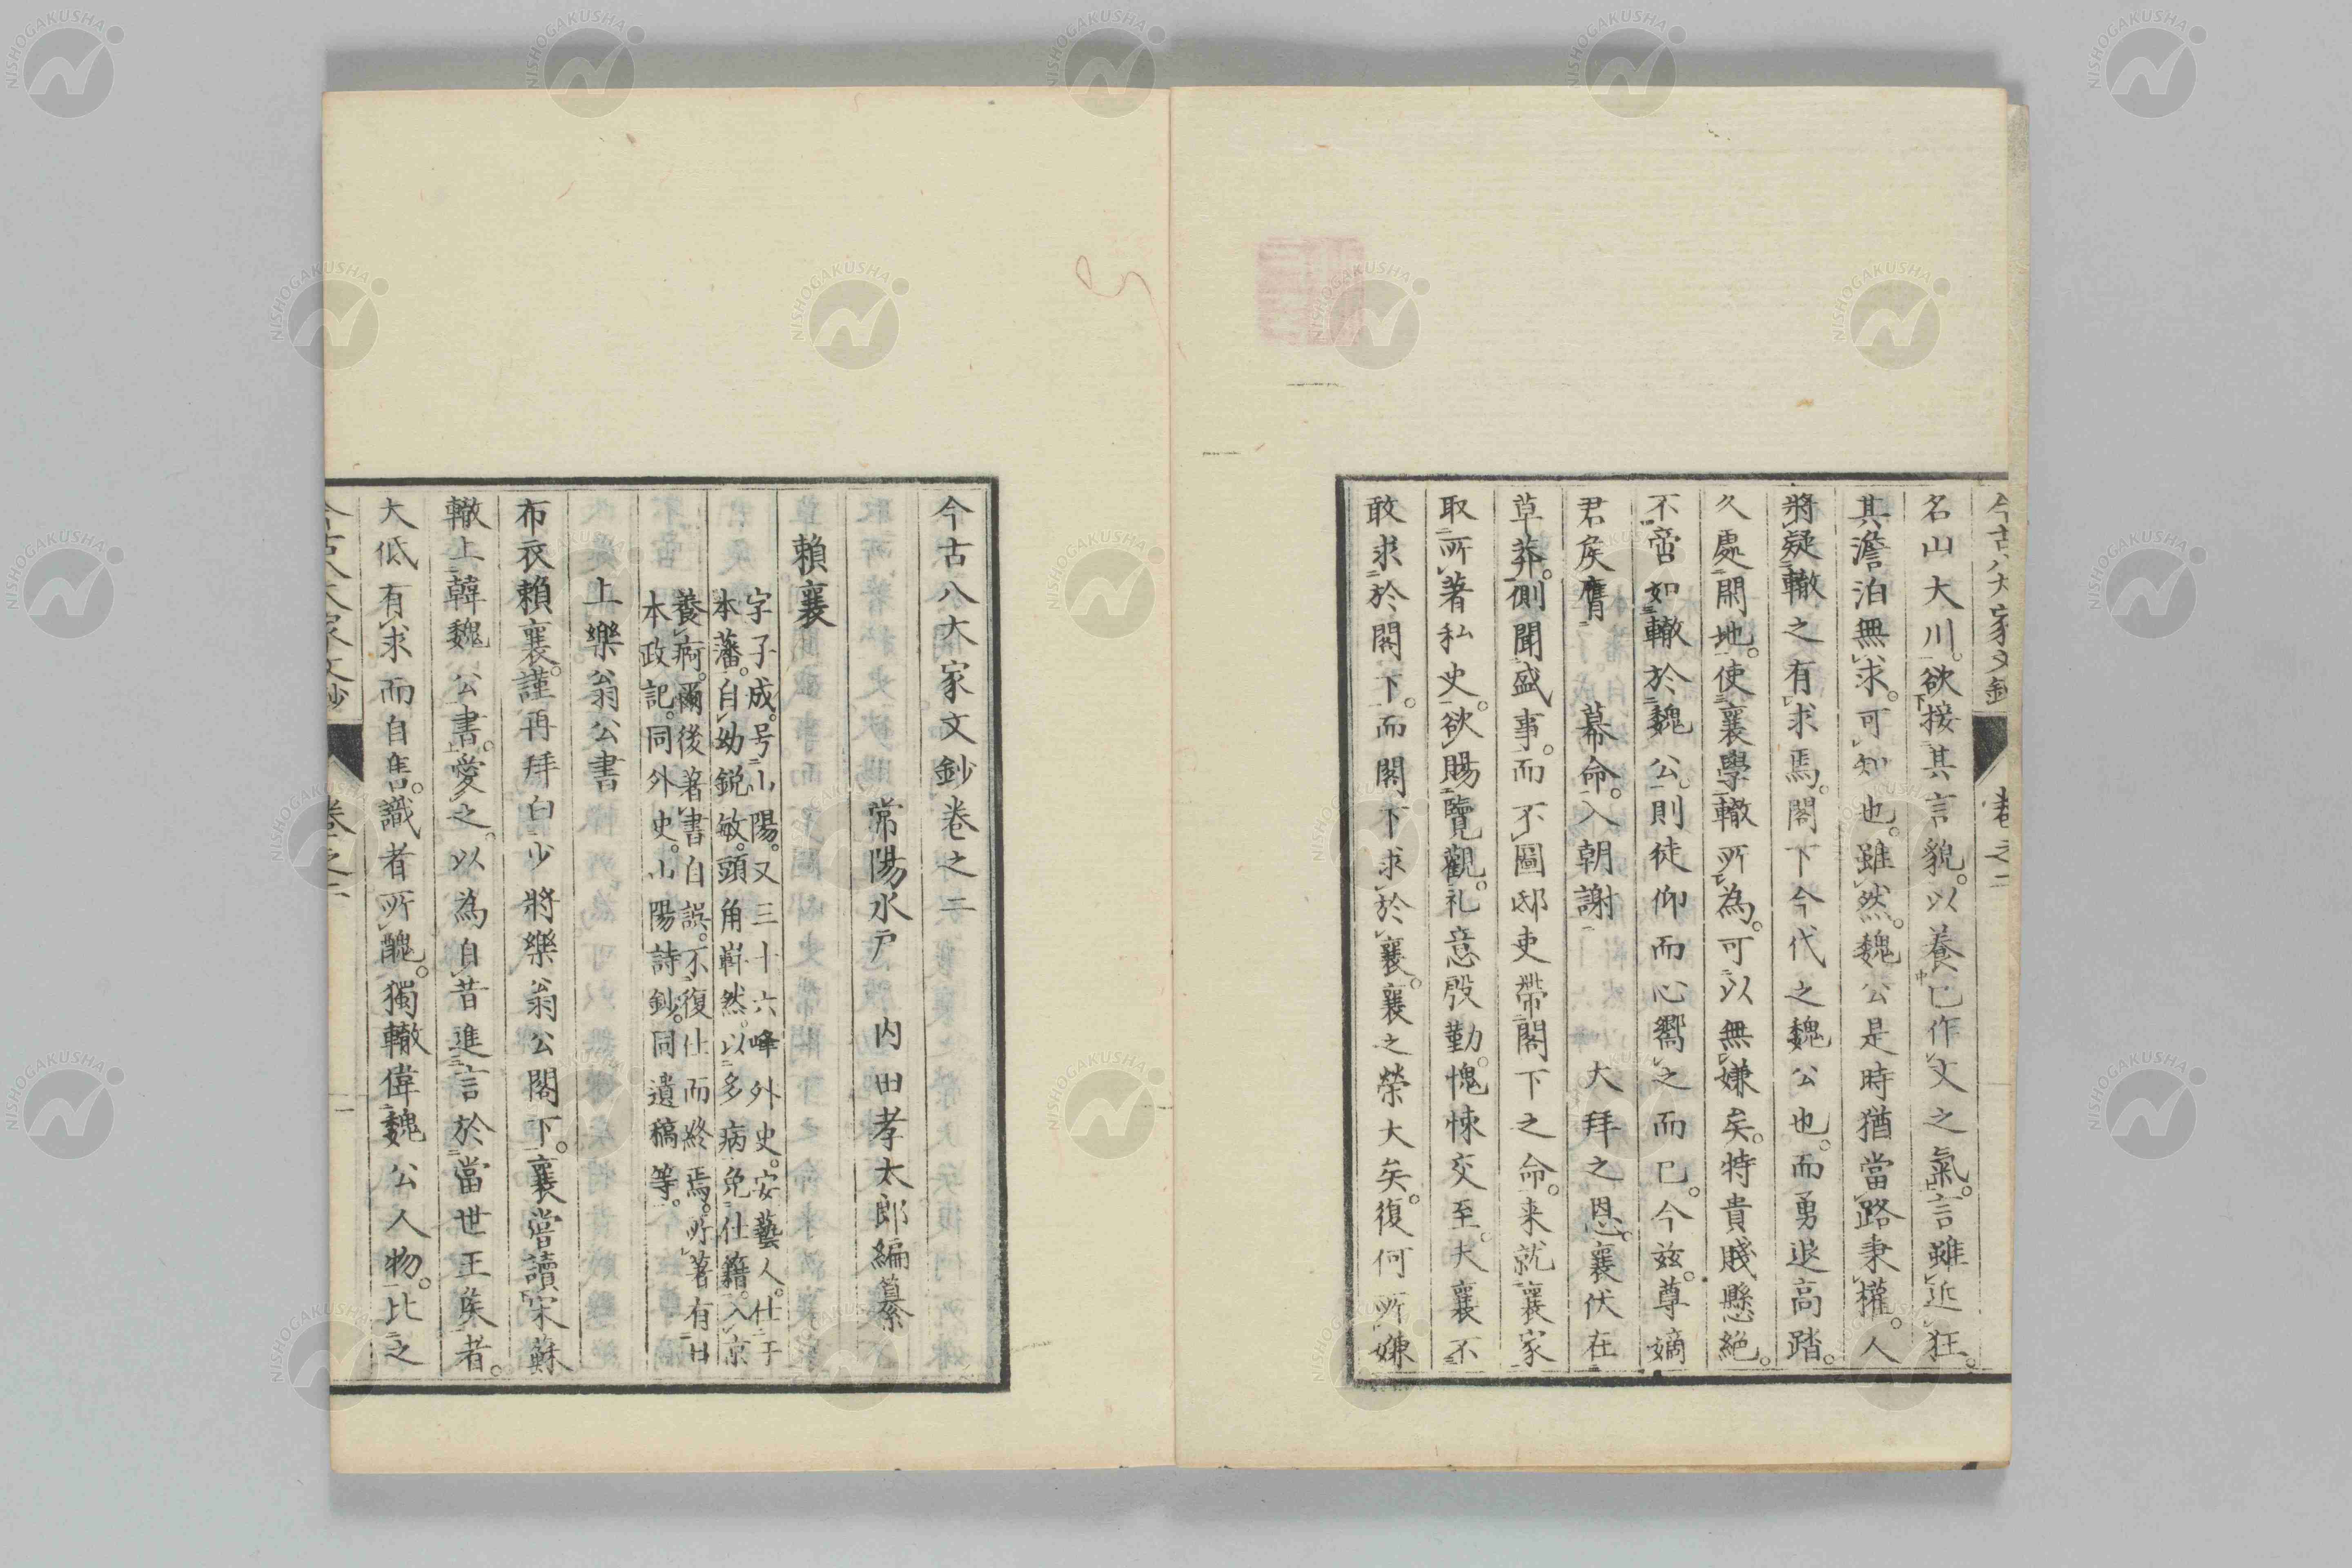 今古八大家文鈔 卷之二
名山大川。欲接其言貌。以養已作文之氣。言雖近狂。
其澹泊無求。可知也。雖然。魏公是時猶當路秉權。人
將疑轍之有求焉。閣下今代之魏公也。而勇退高踏。
久處閑地。使襄學轍所為。可以無嫌矣。特貴賤懸絕。
不啻如轍於魏公。則徒仰而心嚮之而已。今玆。尊嫡
君矦膺 幕命。入朝謝 大拜之恩。襄伏在
草莽。側聞盛事。而不圖邸吏帶閣下之命。来就襄家
取所著私史。欲賜覽觀。礼意殷勤。愧悚交至。夫襄不
敢求於閣下。而閣下求於襄。襄之榮大矣。復何所嫌
今古八大家文鈔卷之二
常陽水戶 内田孝太郎編纂
賴襄
字子成。号山陽。又三十六峰外史。安藝人。仕于
本藩。自幼鋭敏。頭角嶄然。以多病免仕籍。入京
養痾。爾後著書自誤。不復仕而終焉。所著有日
本政記。同外史。山陽詩鈔。同遺稿等。
上樂翁公書
布衣賴襄。謹再拜白少將樂翁公閣下。襄嘗讀宋蘇
轍上韓魏公書。愛之。以為自昔進言於當世王矦者。
大低有求而自售。識者所醜。獨轍偉魏公人物。比之
今古八大家文鈔 卷之二
NISHOGAKUSHA